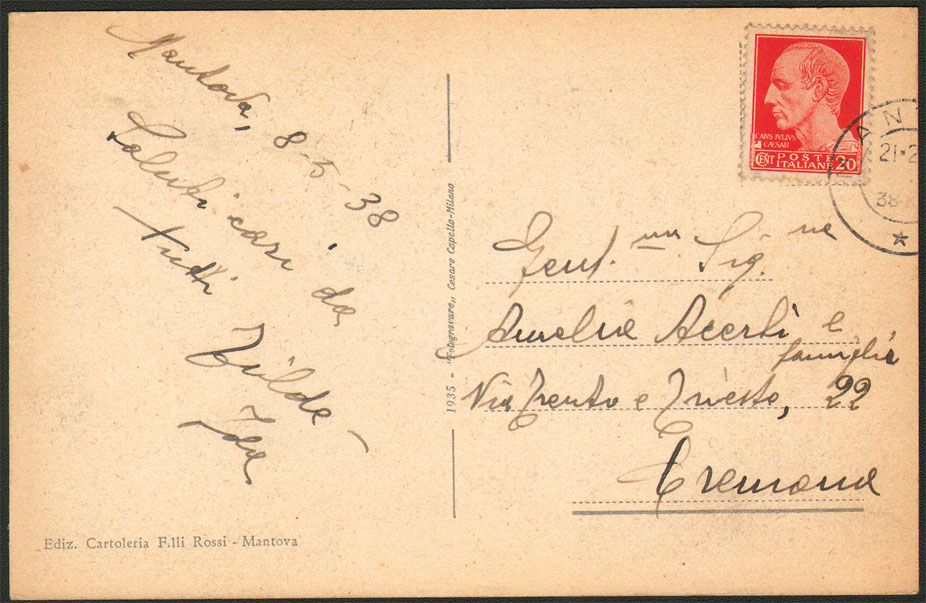 Mantova, 8-5-38
Saluti cari da
tutti
Tilde -
Ida
Ediz. Cartoleria F.lli Rossi - Mantova
1935 - „Fotogravure„ Cesare Capello-Milano
CAIVS IVLIVS
CAESAR
CENT POSTE
ITALIANE 20
MANT
21-2
38-
Gent.ma Sig.ne
Amelia Acerbi e
famiglia
Via Trento e Trieste, 22
Cremona